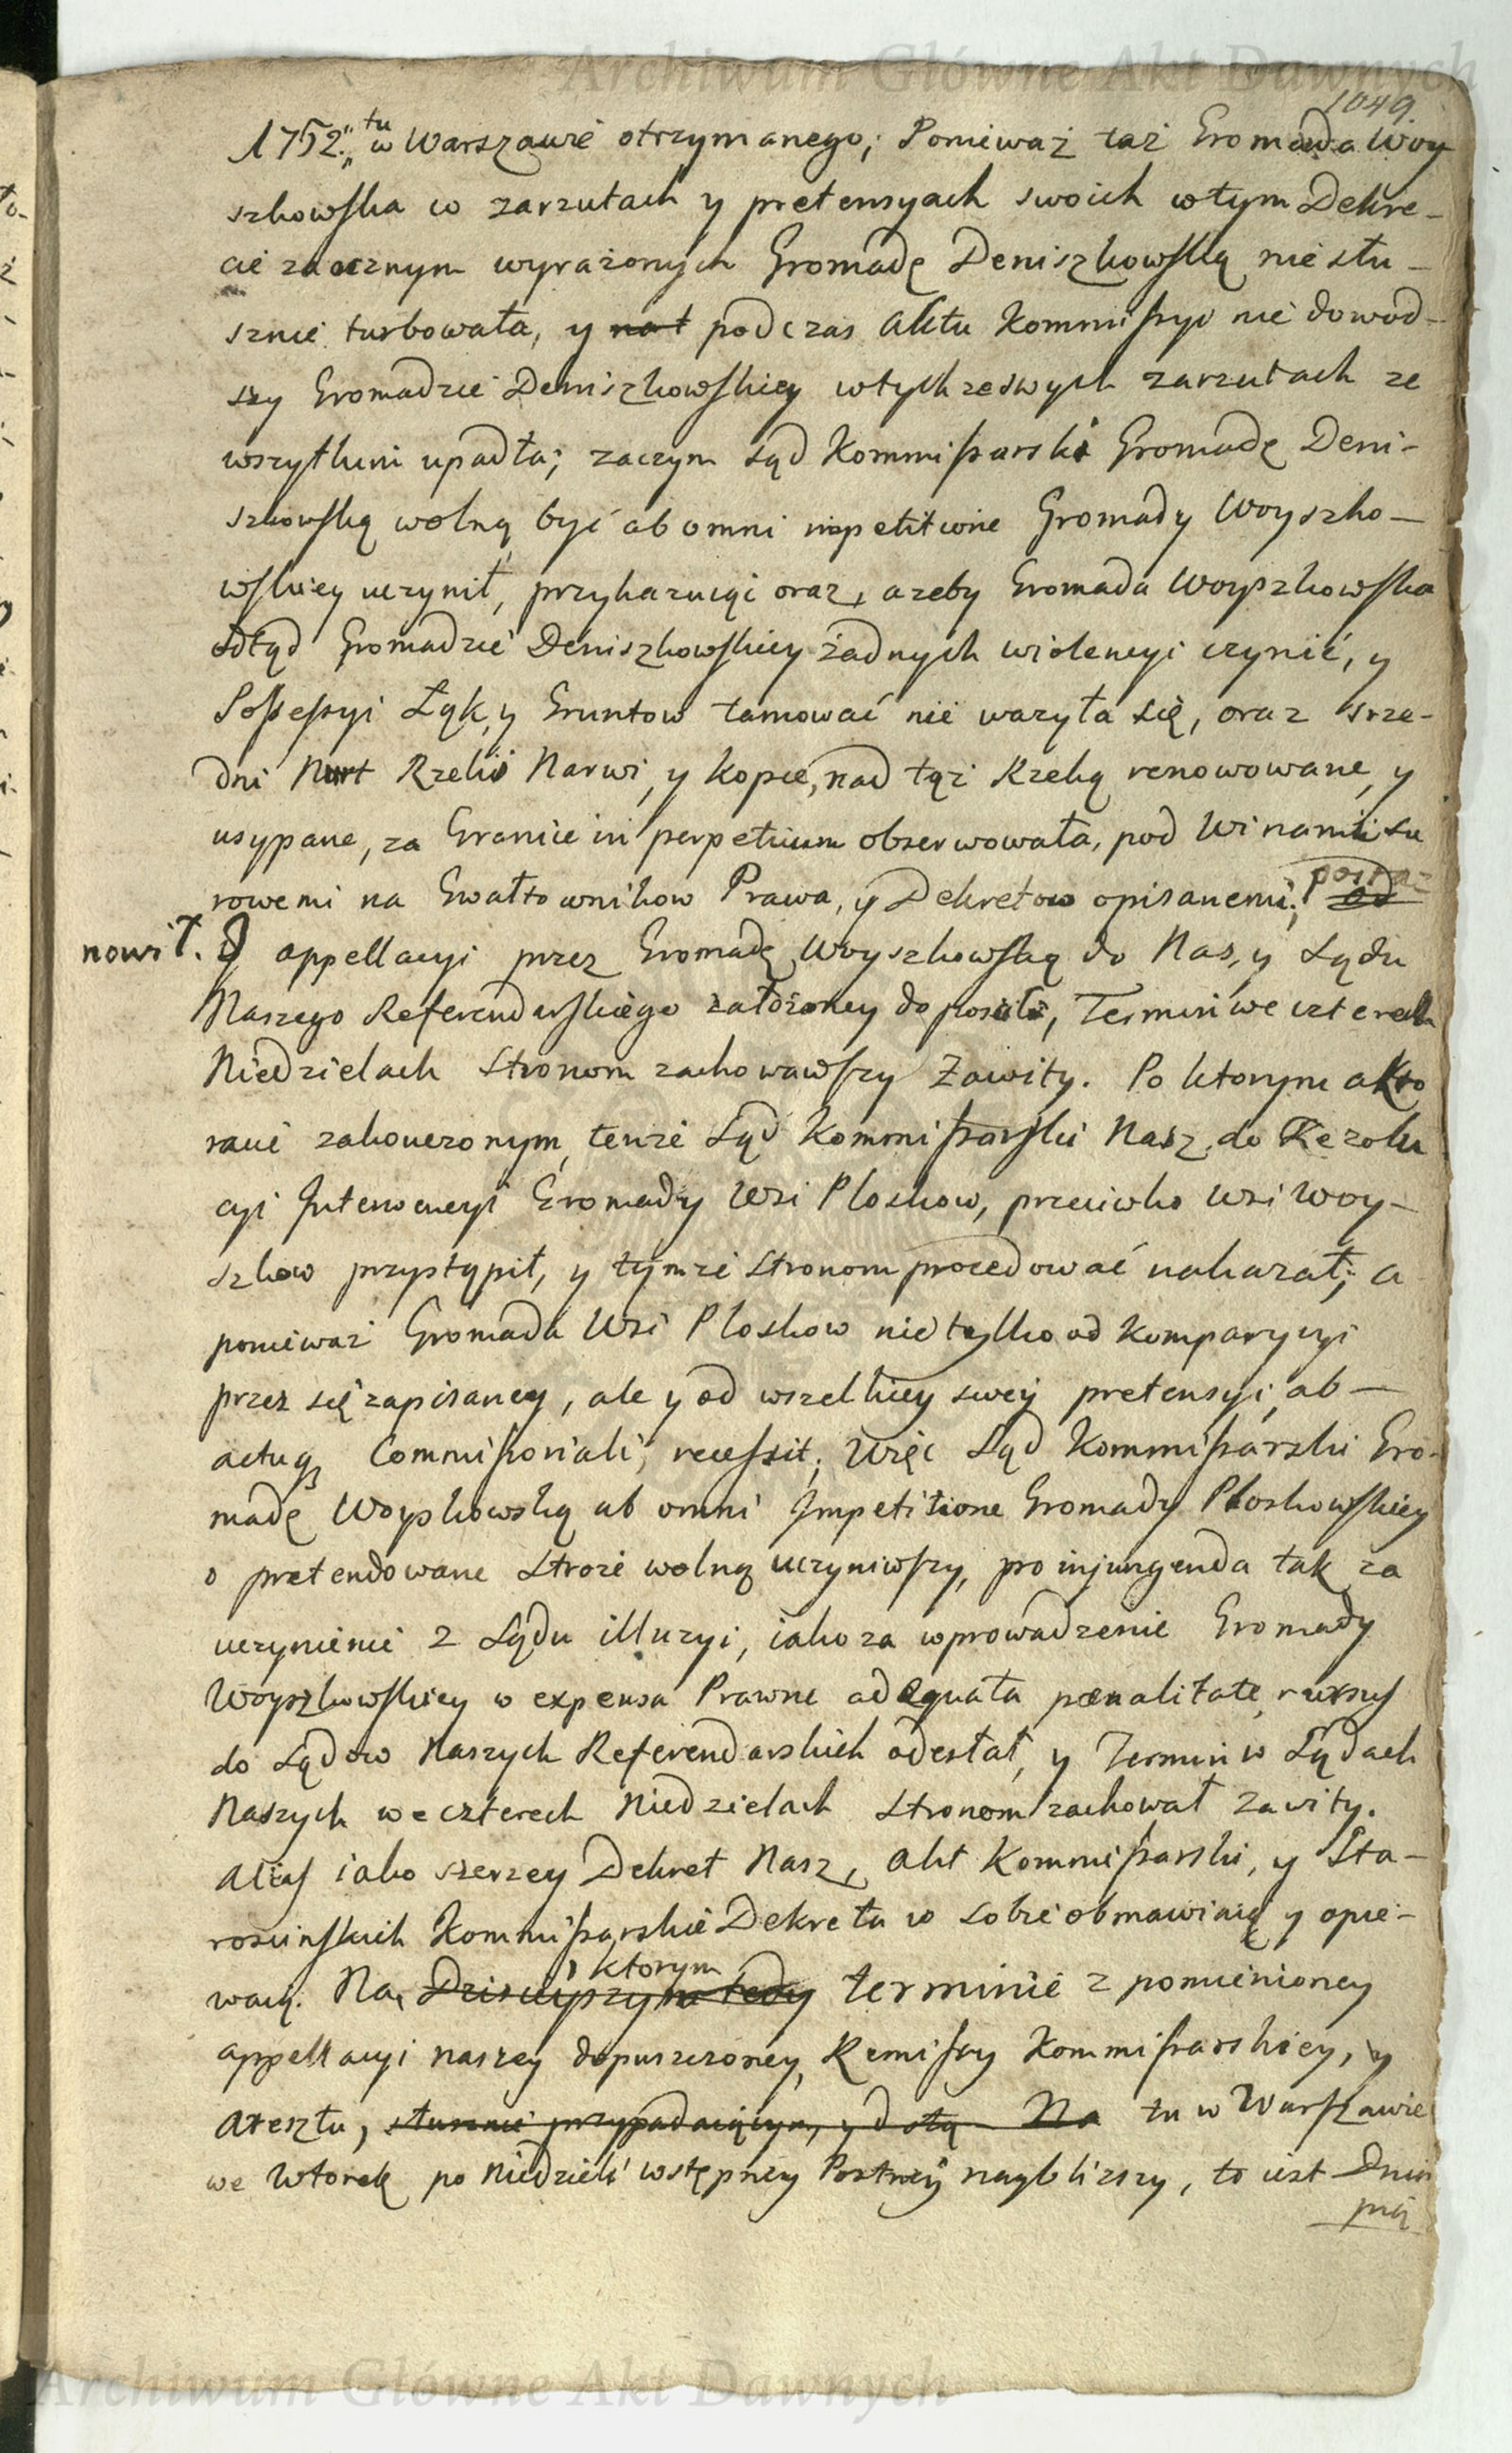 Archiwum Główne Akt Dawnych
1049.
1752., tu w Warszawie otrzymanego; Ponieważ taż Gromada Woy
szkowska w zarzutach y pretensyach swoich w tym Dekre-
cie zaocznym wyrażonych Gromadę Deniszkowską niesłu-
sznie turbowała, y nat podczas Aktu Kommissyi nie dowod-
szy Gromadzie Deniszkowskiey w tychze swych zarzutach ze
wszytkim upadła; zaczym Sąd Kommissarski Gromadę Deni-
szkowską wolną być ab omni impetitione Gromady Woyszko-
wskiey uczynił, przykazuiąc oraz, azeby Gromada Woyszkowska
odtąd Gromadzie Deniszkowskiey żadnych wiolencyi czynić, y
Possessyi Łąk, y Gruntow tamować nie wazyła się, oraz srze-
dni Nurt Rzeki Narwi, y kopce, nad tąż Rzeką renowowane, y
usypane, za Granice in perpetuum obserwowała, pod Winami su
rowemi na Gwałtownikow Prawa, y Dekretow opisanemi; postą- ad
nowił. J appellacyi przez Gromadę Woyszkowską do Nas, y Sądu
Naszego Referendarskiego założoney dopuścił, Termin we czterech
Niedzielach Stronom zachowawszy Zawity. Po ktorym akto
racie zakonczonym, tenże Sąd Kommissarski Nasz do Rezolu
cyi Interwencyi Gromady Wsi Ploskow, przeciwko Wsi Woy-
szkow przystąpił, y tymże Stronom procedować nakazał; a
ponieważ Gromada Wsi Ploskow nie tylko od Komparycyi
przez się zapisaney, ale y od wszelkiey swey pretensyi, ab-
actuq Commissoriali, recessit; Więc Sąd Kommissarski Gro-
madę Woyszkowską ab omni Impetitione Gromady Ploskowskiey
o pretendowane Stroże wolną uczyniwszy, pro injungenda tak za
uczynienie z Sądu illuzyi, iako za wprowadzenie Gromady
Woyszkowskiey w expensa Prawne adequata pœnalitate, rursus
do Sądow Naszych Referendarskich odesłał, y Termin w Sądach
Naszych we czterech Niedzielach Stronom zachował Zawity.
Alias iako szerzey Dekret Nasz, Akt Kommissarski, y Sta-
rościńskich Kommissarskie Dekreta w sobie obmawiaią y opie-
waią. Na ktorym terminie z pomienioney
appellacyi naszey dopuszczoney, Remissy Kommissarskiey, y
Aresztu, słusznie przypadaiącym, y d stą Na tu w Warszawie
we Wtorek po Niedzieli wstępney Postney naybliższy, to iest Dnia
pią
Archiwum Główne Akt Dawnych